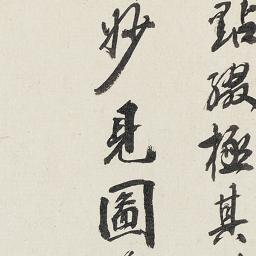 點綴極其
妙見圖